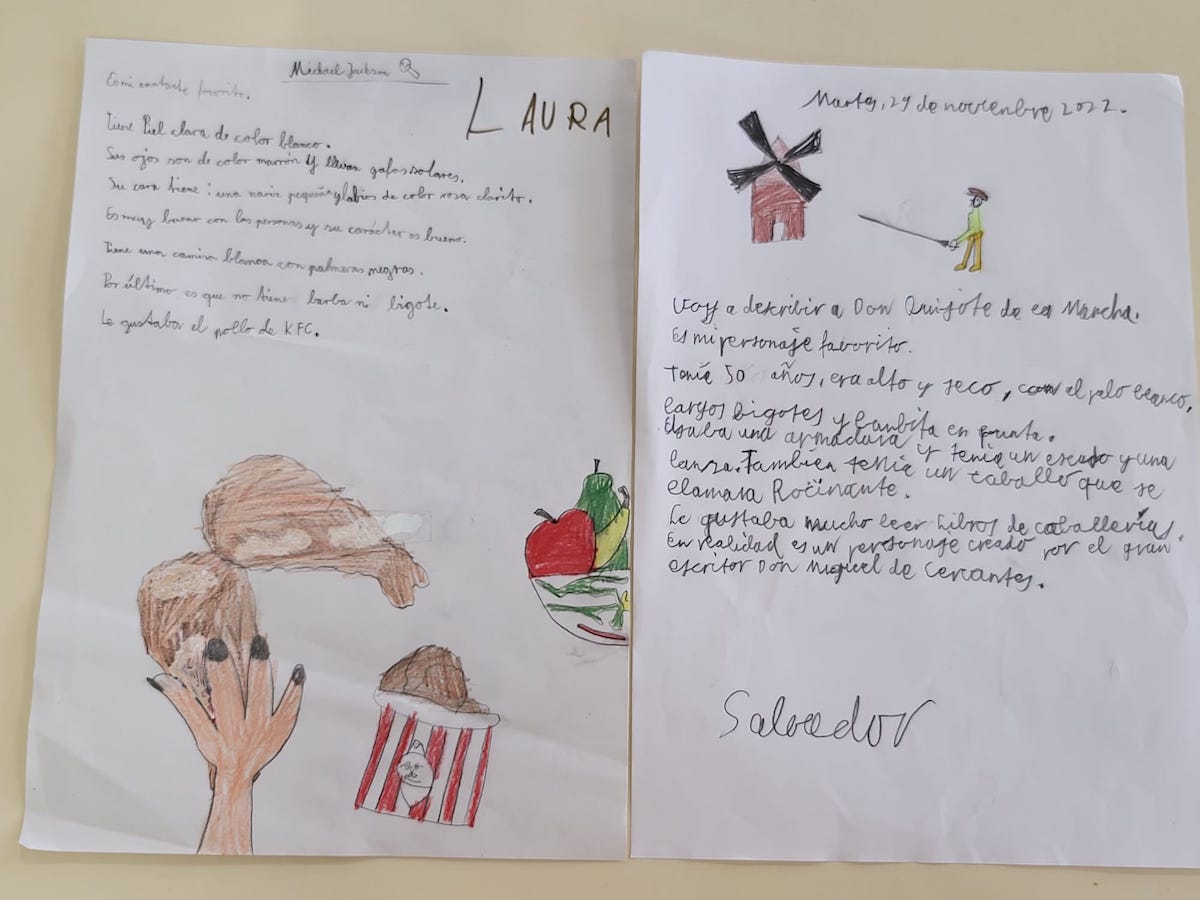 Michael Jackson
LAURA
Es mi cantante favorito.
Tiene Piel clara de color blanco.
Sus ojos son de color marrón y llevan gafas solares.
Su cara tiene: una nariz pequeña y labios de color rosa clarito.
Es muy bueno con las personas y su carácter es bueno.
Tiene una camisa blanca con palmeras negras.
Por último es que no tiene barba ni bigote.
Le gustaba el pollo de KFC.
Martes, 29 de noviembre 2022.
Voy a describir a Don Quijote de la Mancha.
Es mi personaje favorito.
Tenía 50 años, era alto y seco, con el pelo blanco,
largos bigotes y barbita en punta.
Usaba una armadura y tenía un escudo y una
lanza. También tenía un caballo que se
llamara Rocinante.
Le gustaba mucho leer libros de caballerías.
En realidad es un personaje creado por el gran
escritor Don Miguel de Cervantes.
Salvador